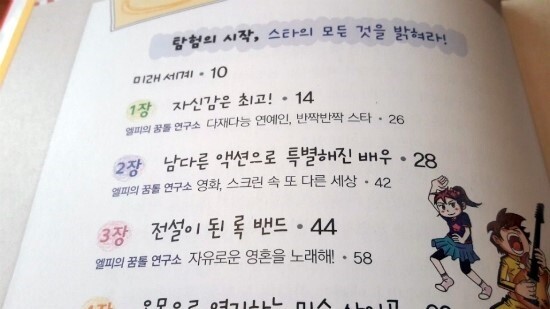 탐험의 시작, 스타의 모든 것을 밝혀라!
미래 세계 • 10
1장 자신감은 최고! • 14
엘피의 꿈톨 연구소 다재다능 연예인, 반짝반짝 스타 • 26
2장 남다른 액션으로 특별해진 배우 • 28
엘피의 꿈톨 연구소 영화, 스크린 속 또 다른 세상 • 42
3장 전설이 된 록 밴드 • 44
엘피의 꿈톨 연구소 자유로운 영혼을 노래해! • 58
온몸으로 연기하는